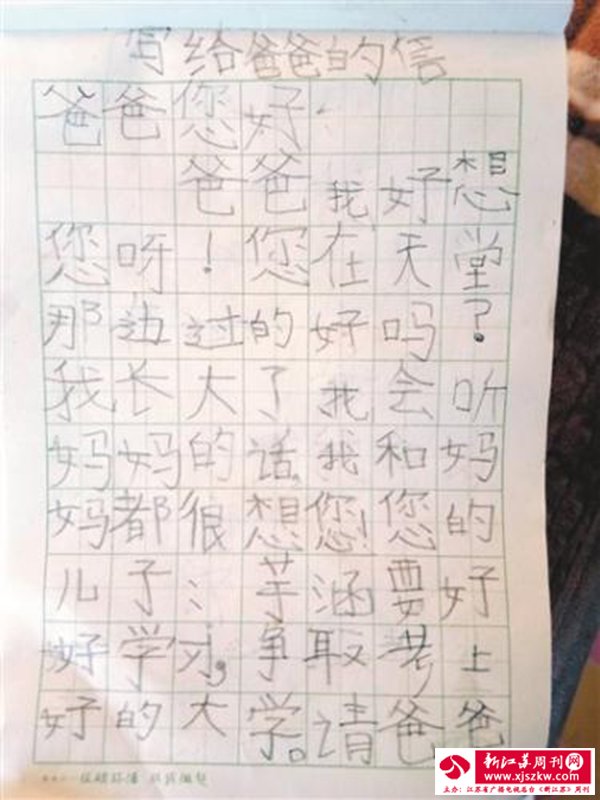 写给爸爸的信
爸爸您好
爸爸我好想
您呀！您在天堂
那边过的好吗？
我长大了我会听
妈妈的话，我和妈
妈都很想您！您的
儿子：芋涵要好
好学习，争取考上
好的大学。请爸爸
新江苏周刊网
www.xjszkw.com
主办：江苏省广播电视总台《新江苏》周刊